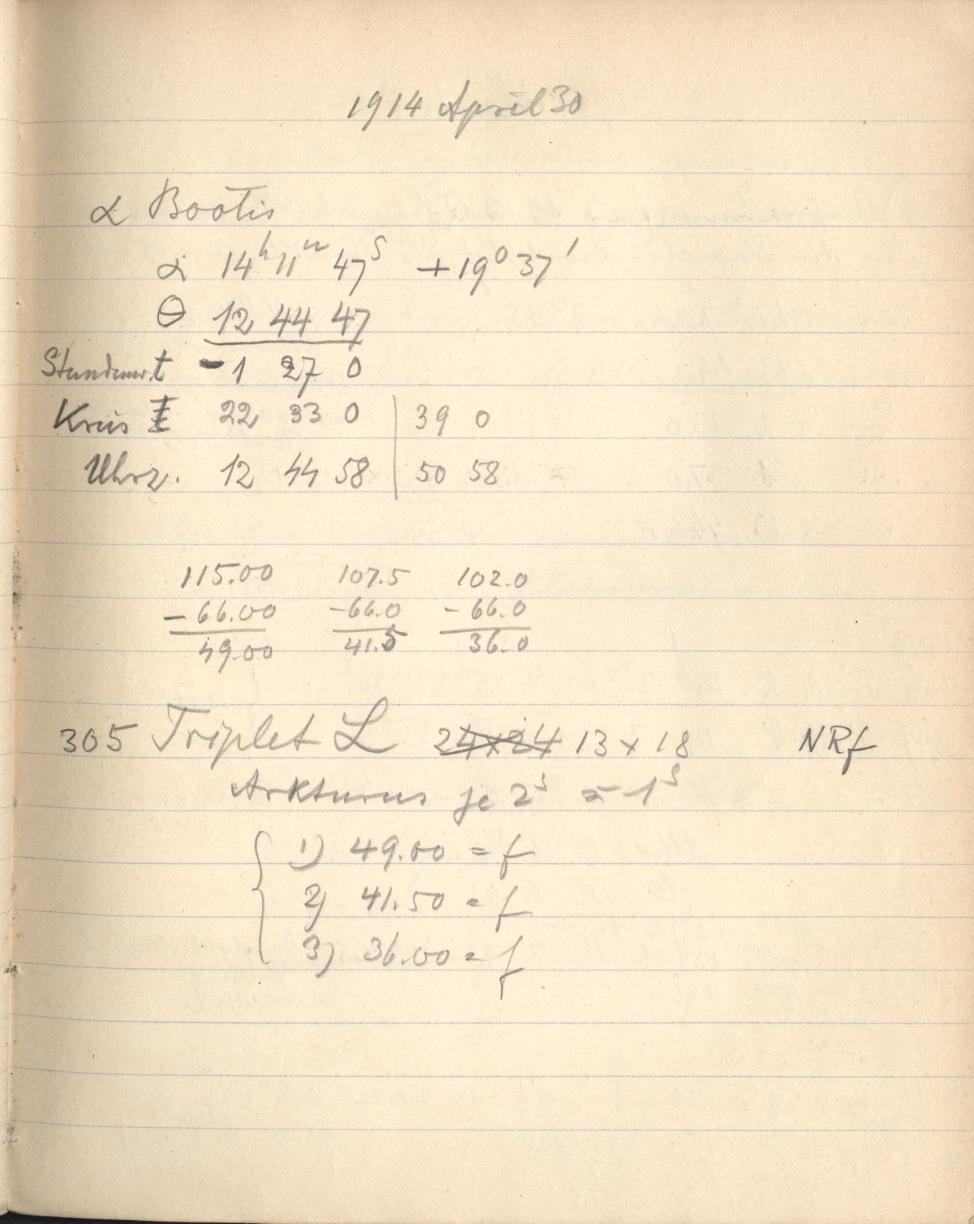 1914 April 30
α Bootis
α 14ʰ 11ᵐ 47ˢ +19° 37′
Θ 12 44 47
t -1 27 0
Kreis 22 33 0 | 39 0
Uhrz. 12 44 58 | 50 58
115.00 107.5 102.0
-66.00 -66.0 -66.0
49.00 41.5 36.0
305 Triplet L 24x24 13 x 18 NRf
Arkturus je 2ˢ 1ˢ
1) 49.00 = f
2) 41.50 = f
3) 36.00 = f